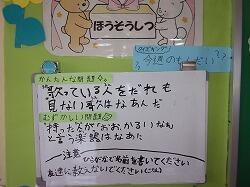 ほうそうしつ
今週のもんだい??
かんたんな問題◇
歌っている人をだれも
見ない歌はなあんだ
むずかしい問題◎
持った人が「おお、かるいなあ」
と言う楽器はなあに
注意
ひらがなで名前を書いてください
友達に教えないでください